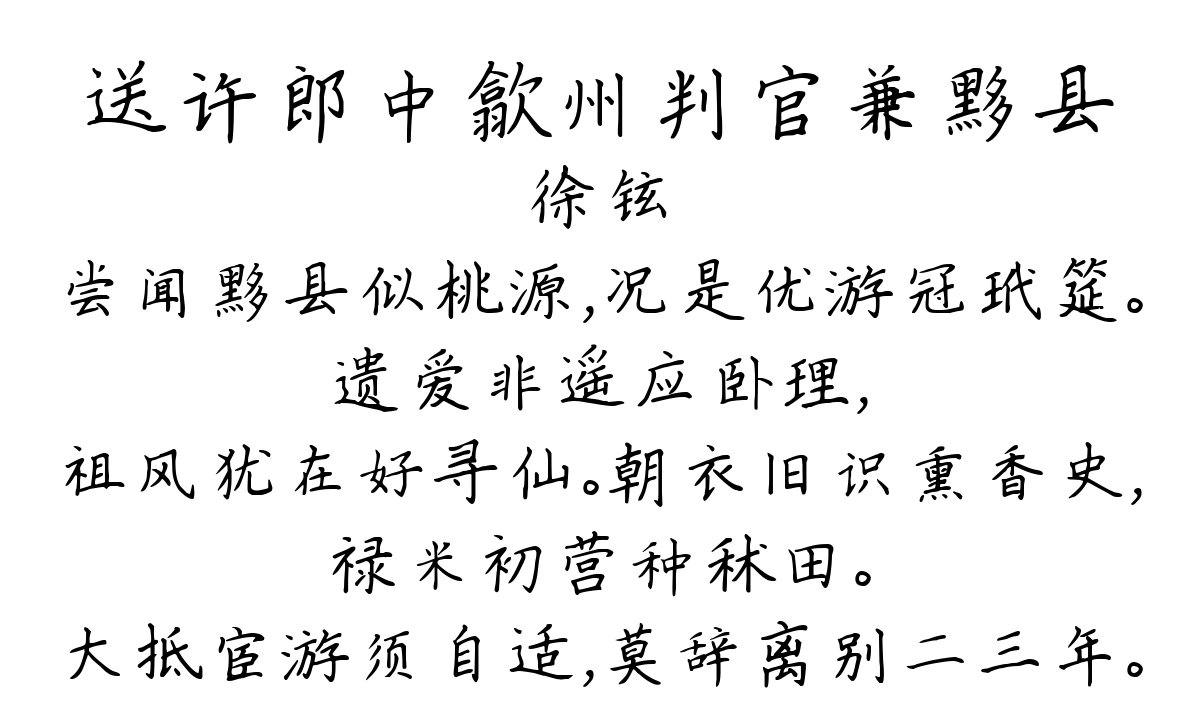 送许郎中歙州判官兼黟县
徐铉
尝闻黟县似桃源,况是优游冠玳筵。
遗爱非遥应卧理,
祖风犹在好寻仙。朝衣旧识熏香史,
禄米初营种秫田。
大抵宦游须自适,莫辞离别二三年。